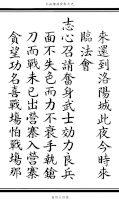 來還到洛陽城此夜今時來
臨法會
志心召請奮身武士効力良兵
面不失色而力不衰手執鎗
刀而戰未已出營寨入營寨
貪望功名喜戰場怕戰場那